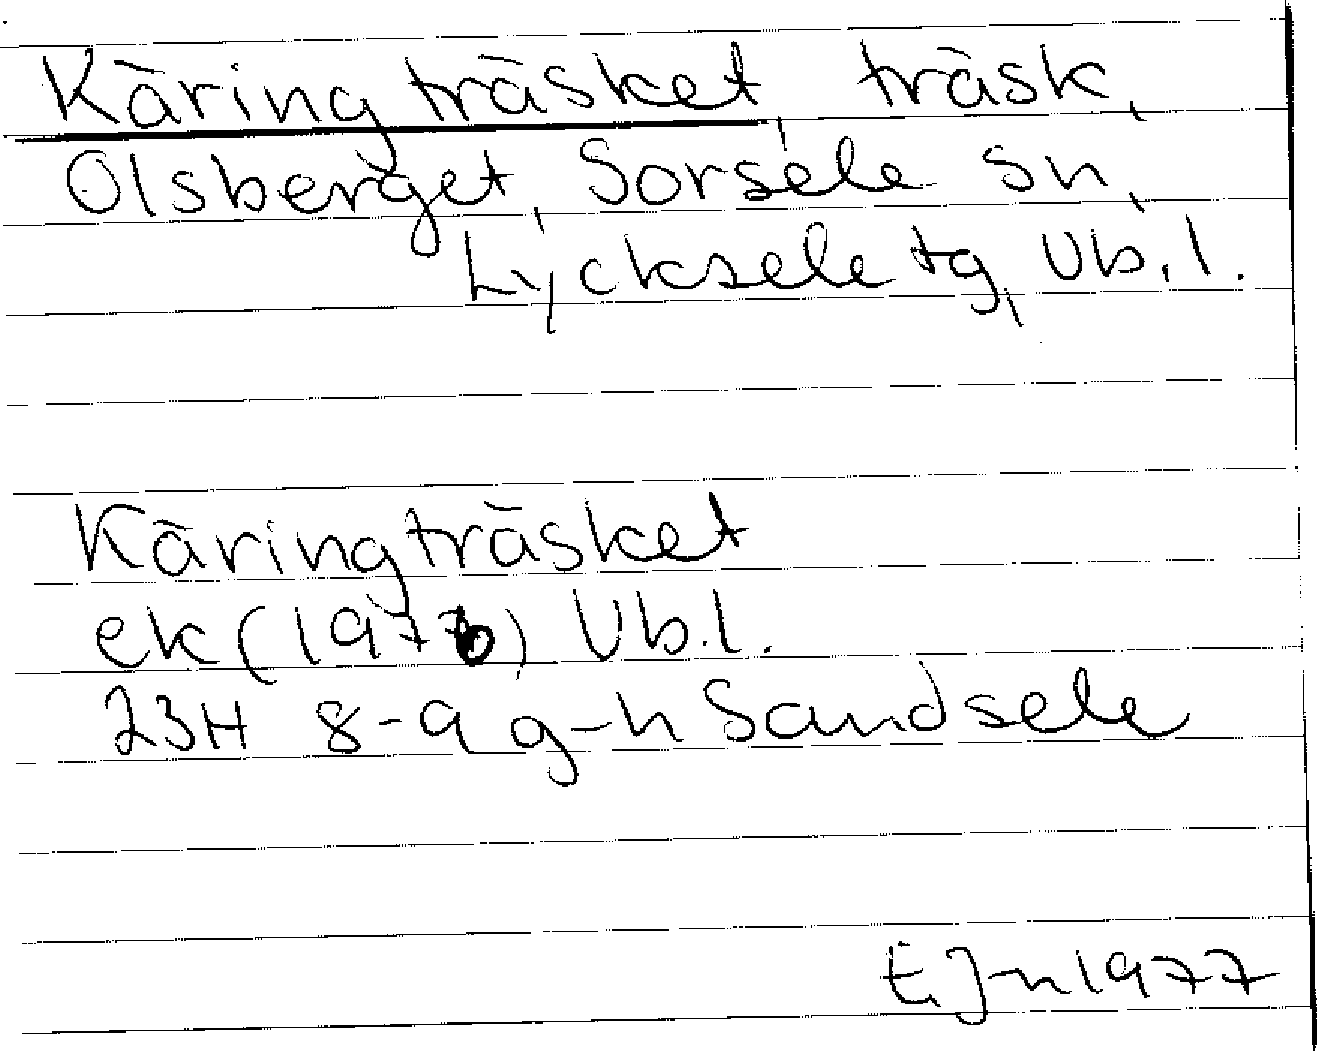 Käringträsket, träsk,
Olsberget, Sorsele sn,
Lycksele tg, Vb.l.
Käringträsket
ek (1976) Vb.l.
23H 8-9 g-h Sandsele
E Jn 1977